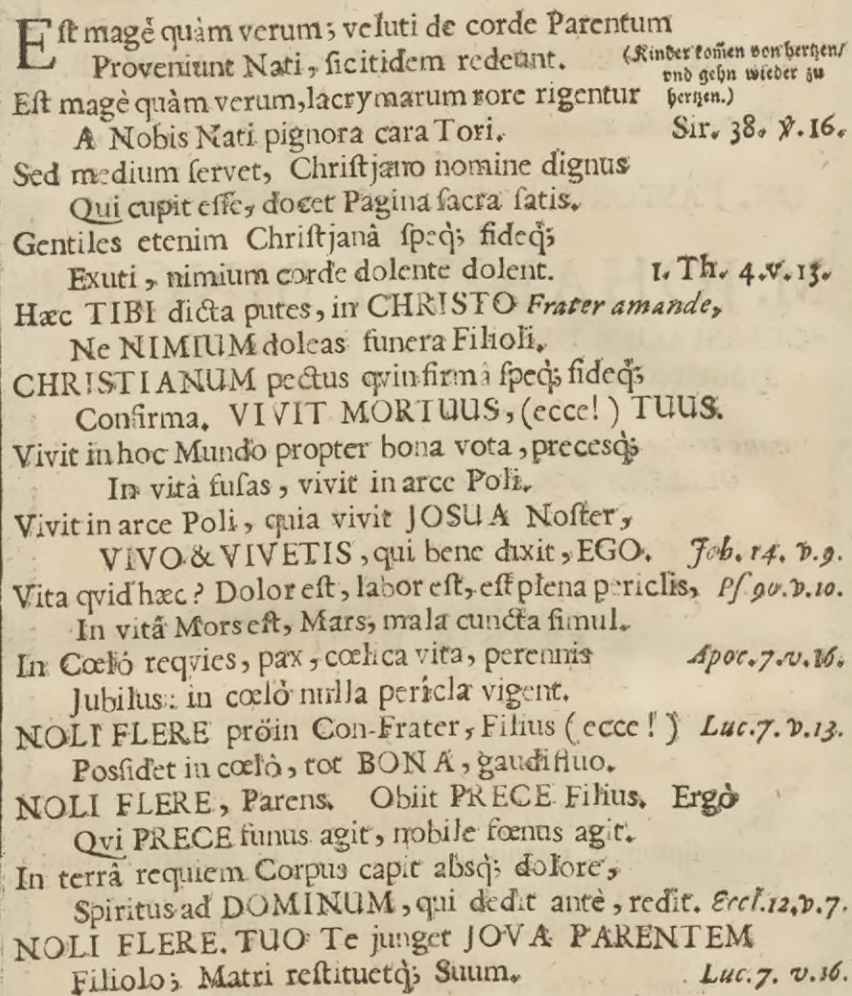 Eſt magè quàm verum; veluti de corde Parentum
Proveniunt Nati, ſic itidem redeunt. (Kinder komen von hertzen/
vnd gehn wieder zu
Eſt magè quàm verum, lacrymarum rore rigentur hertzen.)
A Nobis Nati pignora cara Tori. Sir. 38. ℣. 16.
Sed medium ſervet, Chriſtjano nomine dignus
Qui cupit eſſe, docet Pagina ſacra ſatis.
Gentiles etenim Chriſtjanâ ſpeq; fideq́;
Exuti, nimium corde dolente dolent. 1. Th. 4. v. 13.
Hæc TIBI dicta putes, in CHRISTO Frater amande,
Ne NIMIUM doleas funera Filioli.
CHRISTIANUM pectus qvin firma ſpeq́; fideq́;
Confirma. VIVIT MORTUUS, (ecce!) TUUS.
Vivit in hoc Mundo propter bona vota, precesq́;
In vitâ fuſas, vivit in arce Poli.
Vivit in arce Poli, quia vivit JOSUA Noſter,
VIVO & VIVETIS, qui bene dixit, EGO. Joh. 14. v. 9.
Vita qvid hæc? Dolor eſt, labor eſt, eſt plena periclis, Pſ 90. v. 10.
In vitâ Mors eſt, Mars, mala cuncta ſimul.
In Cœlò requies, pax, cœlica vita, perennis Apoc. 7. v. 16.
Jubilus: in cœlò nulla perîcla vigent.
NOLI FLERE pröin Con-Frater, Filius (ecce!) Luc. 7. v. 13.
Poſſidet in cœlò, tot BONA, gaudifluo.
NOLI FLERE, Parens. Obiit PRECE Filius. Ergò
Qvi PRECE funus agit, nobile fœnus agit.
In terrâ requiem Corpus capit absq; dolore,
Spiritus ad DOMINUM, qui dedit antè, redit. Eccl. 12. v. 7.
NOLI FLERE. TUO Te junget JOVA PARENTEM
Filiolo; Matri reſtituetq́; Suum. Luc. 7. v. 16.